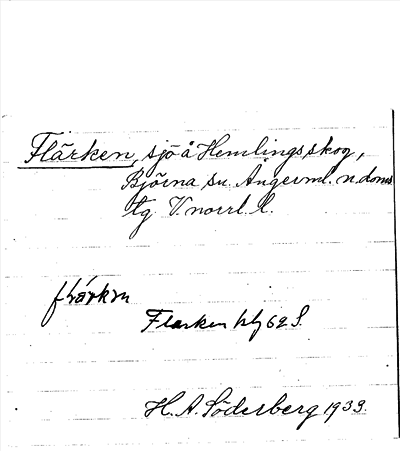 Flärken, sjö å Hemlings skog,
Björna sn. Ångerml. n. doms
tg V.norrl. l.
flärkɐn
Flarken hly 62 S.
H. A. Söderberg 1933.